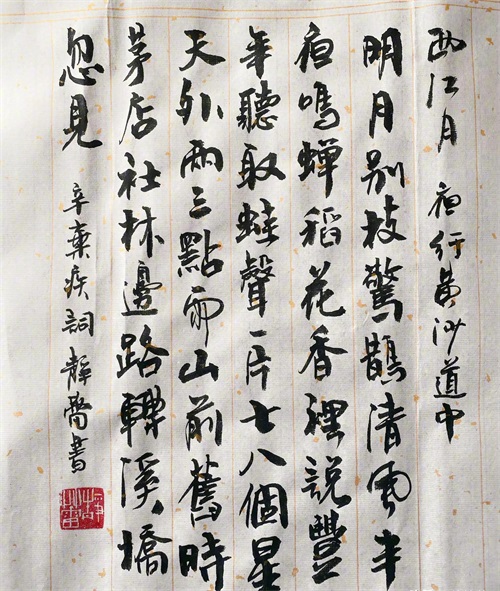 西江月 夜行黃沙道中
明月别枝驚鵲清風半
夜鳴蟬稻花香裡說豐
年聽取蛙聲一片七八個星
天外兩三點雨山前舊時
茅店社林邊路轉溪橋
忽見 辛棄疾詞 靜書